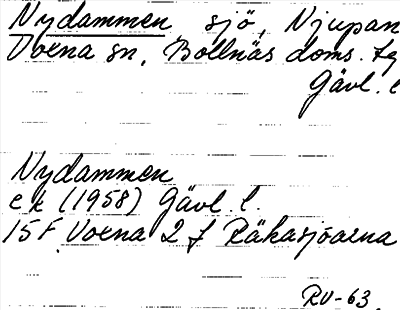 Nydammen sjö, Njupan
Voxna sn, Bollnäs doms. tg
Gävl. l
Nydammen
ek (1958) Gävl. l.
15F Voxna 2 f Räkasjöarna
RV-63.